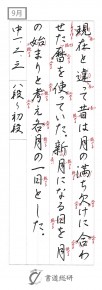 9月
現在と違い昔は月の満ち欠けに合わ
せた暦を使っていた。新月になる日を月
の始まりと考え各月の一日とした。
中一二三 八段〜初段
書道総研